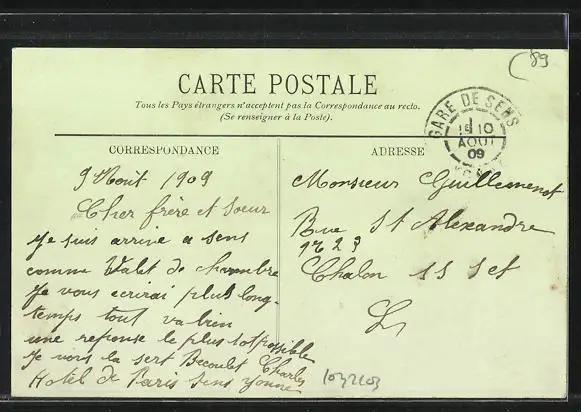 89
CARTE POSTALE
Tous les Pays étrangers n'acceptent pas la Correspondance au recto.
(Se renseigner à la Poste).
GARE DE SENS
15 10
AOUT
09
CORRESPONDANCE
9 Aout 1909
Cher frère et Soeur
Je suis arrive a sens
comme Valet de chambre
Je vous ecrirai plus long-
temps tout va bien
une reponse le plus tot possible
Je vous la sert Becoulet Charles
Hotel de Paris Sens Yonne
ADRESSE
Monsieur Guillemenot
Rue St Alexandre
N° 23
Chalon s S